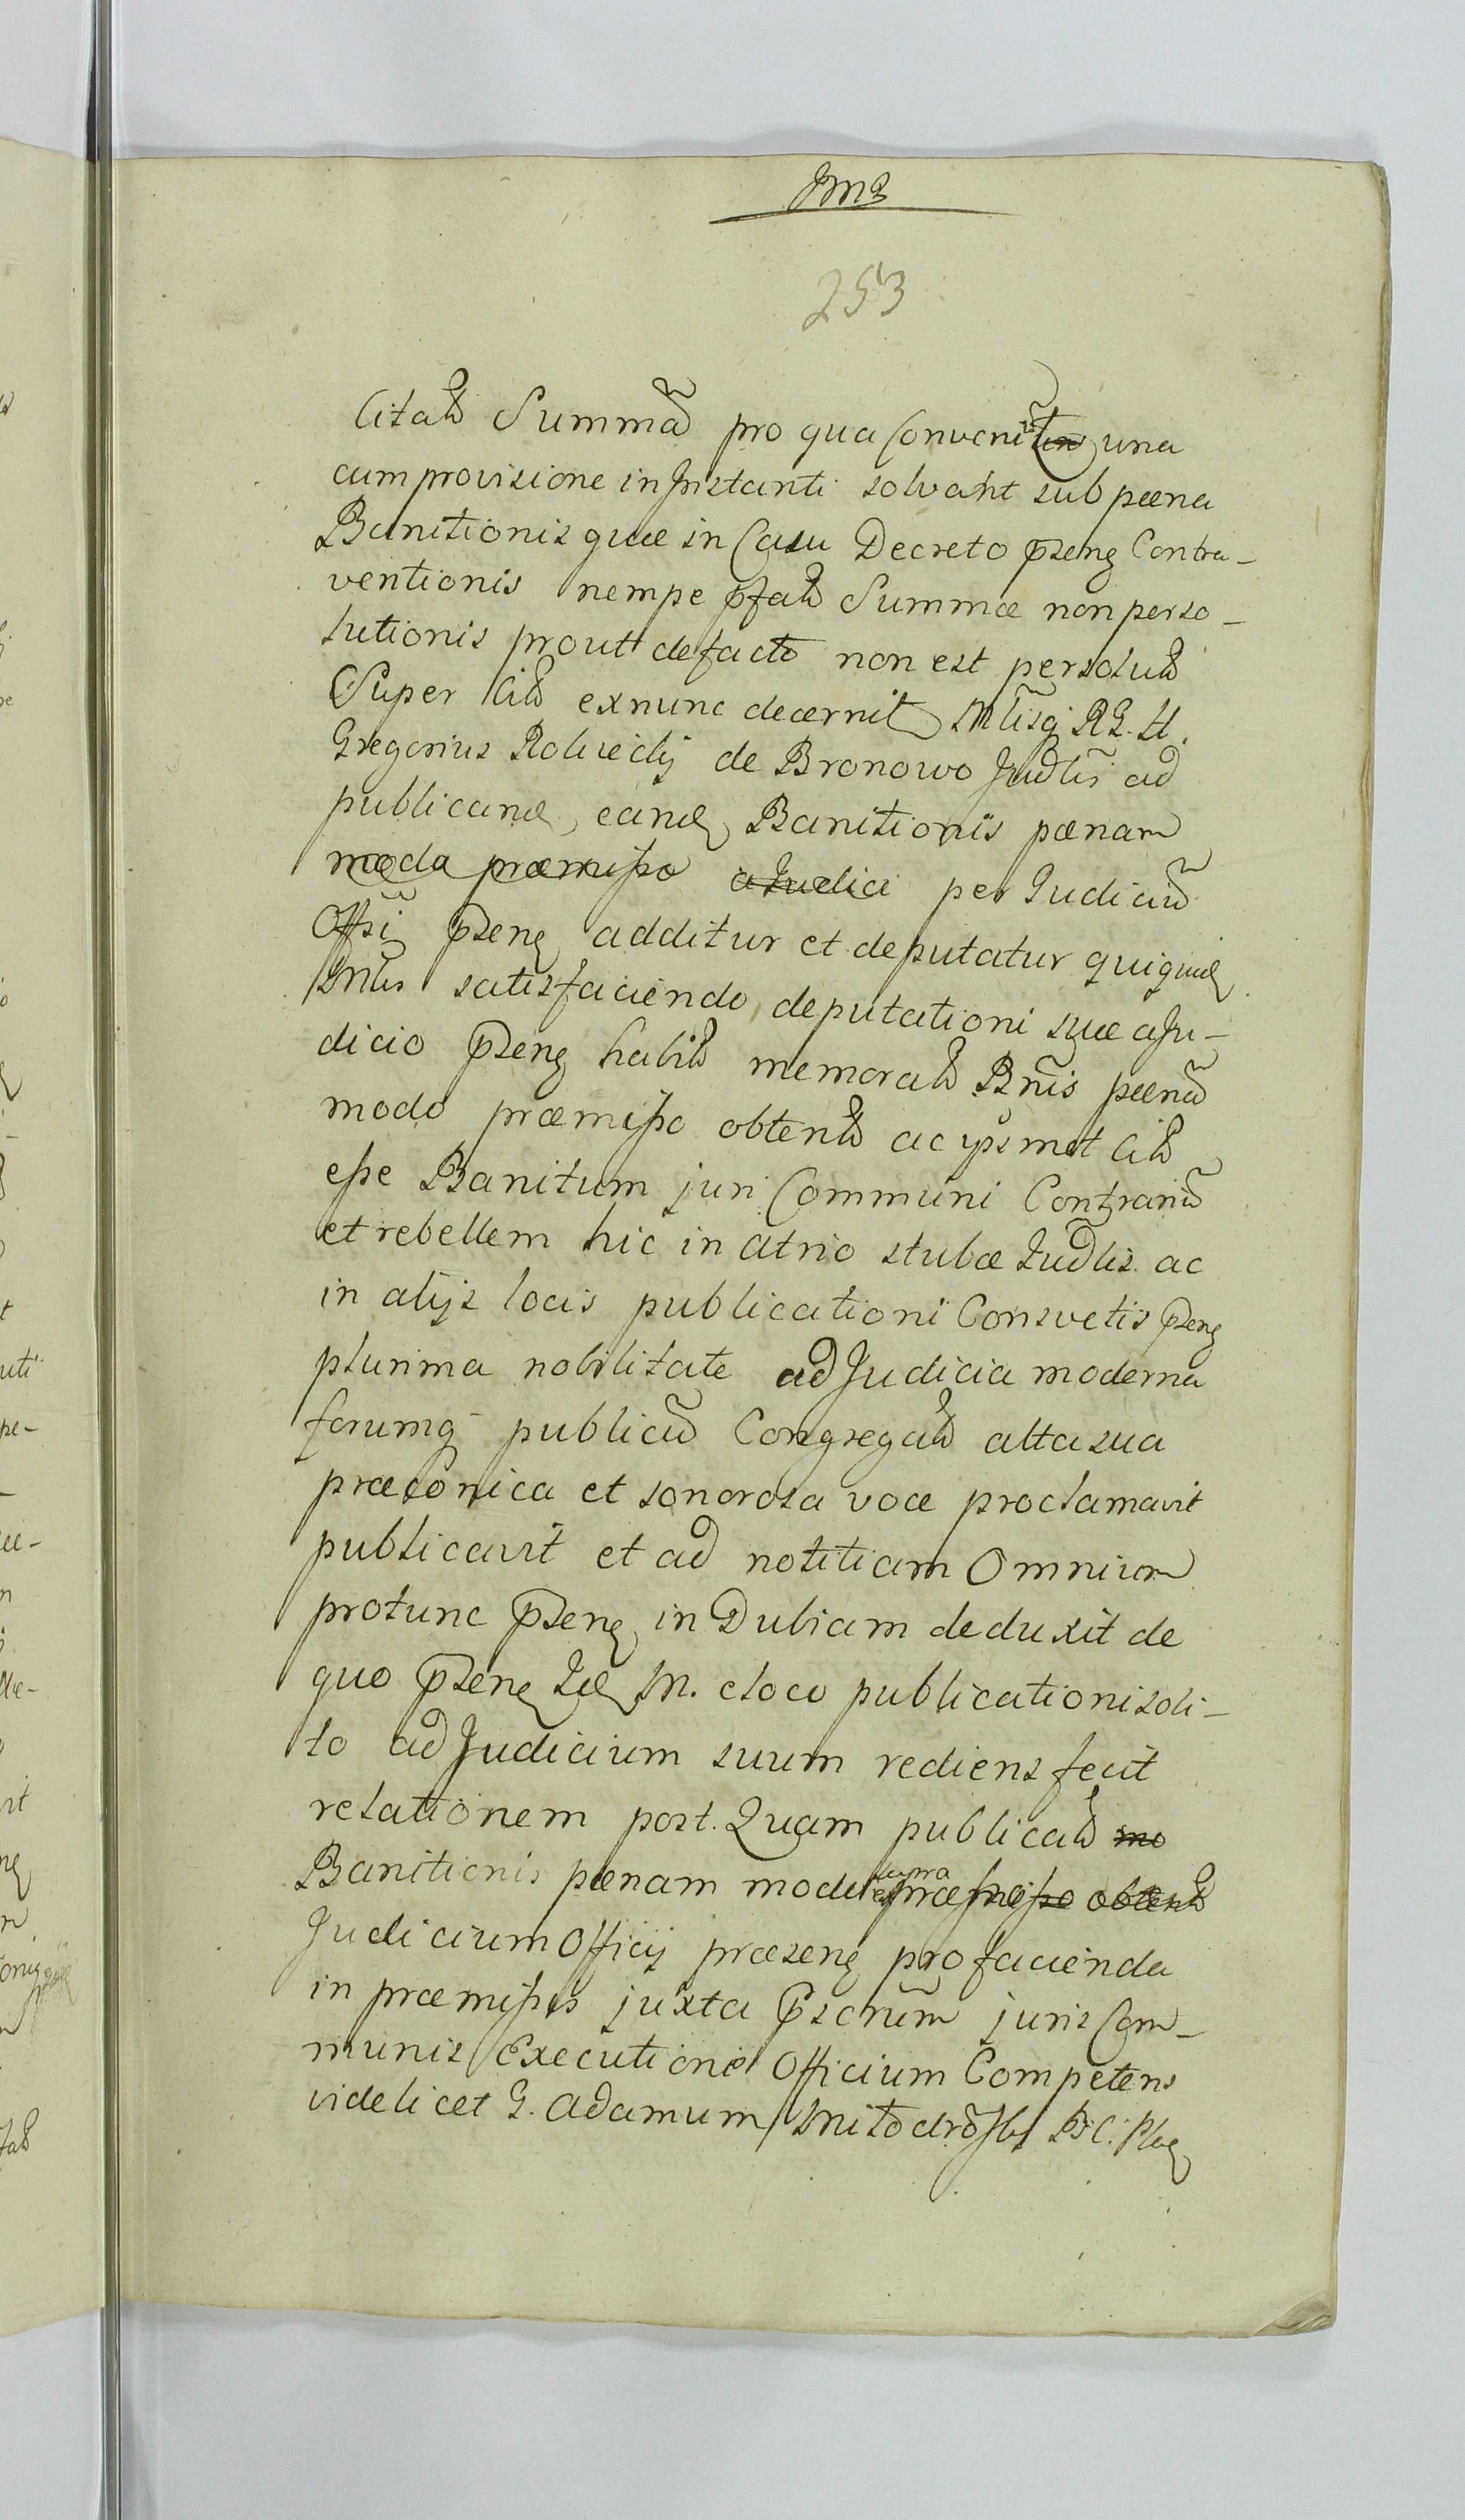 253
Citatā Summā pro qua conveniūt una
cum provisione in Instanti solvant sub pœna
Banitionis quæ in Casu Decreto p̄sens Contra-
ventionis nempe p̄fatā Summæ non perso-
lutionis proutt de facto non est persolutā
Super Citt exnunc decernit G.
Gregorius de Bronowo Judlis ad
publicand eand Banitionis pœnam
modo præmisso a Judici per Judiciū
Offi p̄sens additur et deputatur quiquid
Mrlis satisfaciendo deputationi suæ a Ju-
dicio p̄sens habitā memoratā Bnis pœnā
modo præmisso obtentā ac ipsmet Citt
esse Banitum juri Communi Contrariū
et rebellem hic in atrio stubæ Judlis ac
in alijs locis publicationi Consvetis p̄sens
plurima nobilitate ad Judicia moderna
forumq publicū Congregatā alta sua
præconica et sonorosa voce proclamavit
publicavit et ad notitiam Omnium
protunc p̄sens in Dubiam deduxit de
quo p̄sens Id M. e loco publicationi soli-
to ad Judicium suum rediens fecit
relationem post Quam publicatā mo
Banitionis pœnam modo supra præmisso obtentā
Judicium Officij præsens pro facienda
in præmissis juxta p̄scrūm juris Com-
munis Executione Officium Competens
videlicet G. Adamum